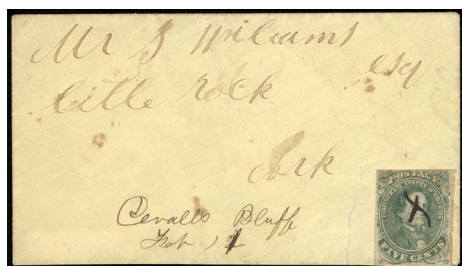 Mr S Williams
esq
little rock
Ark
Devalls Bluff
Feb 12
POSTAGE
FIVE CENTS